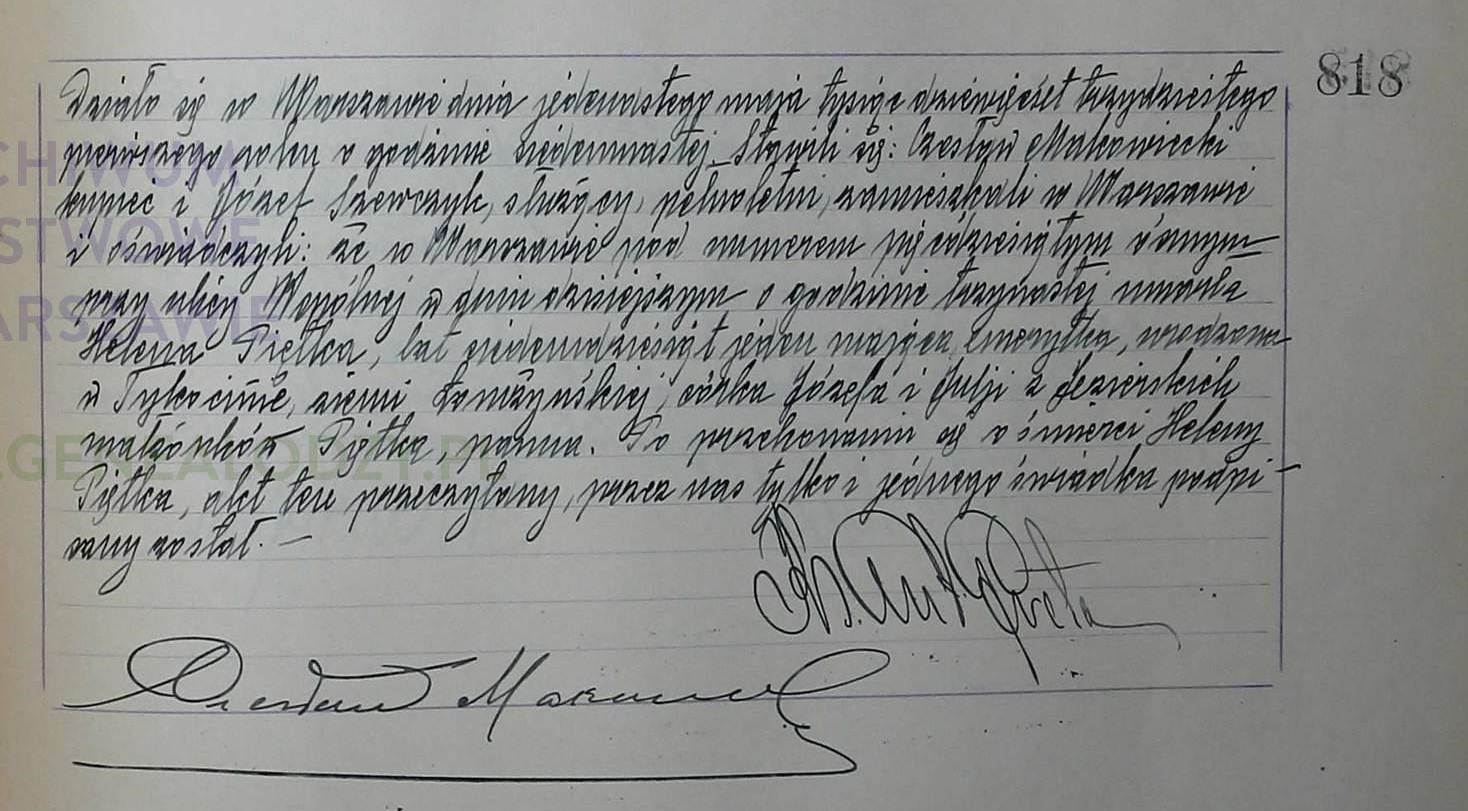 818
Działo się w Warszawie dnia jedenastego maja tysiąc dziewięćset trzydziestego
pierwszego roku o godzinie siedemnastej. Stawili się: Czesław Makowiecki
kupiec i Józef Szewczyk, służący, pełnoletni, zamieszkali w Warszawie
i oświadczyli: że w Warszawie pod numerem pięćdziesiątym ósmym
przy ulicy Wspólnej w dniu dzisiejszym o godzinie trzynastej umarła
Helena Piętka, lat siedemdziesiąt jeden mająca, emerytka, urodzona
w Tykocinie, ziemi Łomżyńskiej, córka Józefa i Julji z Jezierskich
małżonków Piętka, panna. Po przekonaniu się o śmierci Heleny
Piętka, akt ten przeczytany, przez nas tylko i jednego świadka podpi-
sany został. —
Czesław